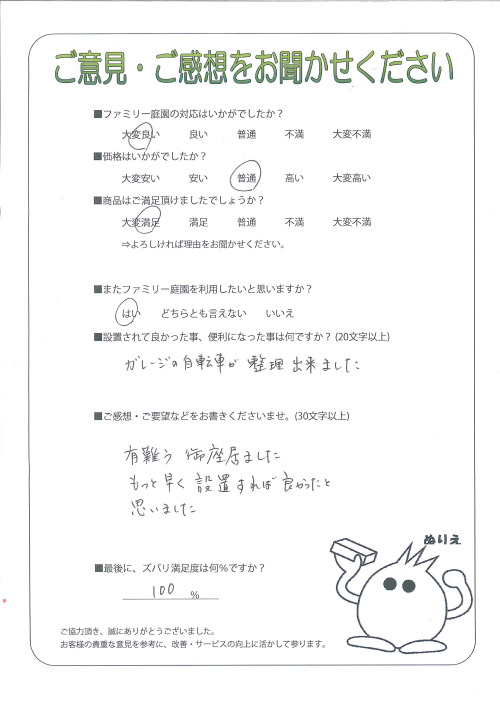 ご意見・ご感想をお聞かせください
■ファミリー庭園の対応はいかがでしたか？
大変良い 良い 普通 不満 大変不満
■価格はいかがでしたか？
大変安い 安い 普通 高い 大変高い
■商品はご満足頂けましたでしょうか？
大変満足 満足 普通 不満 大変不満
⇒よろしければ理由をお聞かせください。
■またファミリー庭園を利用したいと思いますか？
はい どちらとも言えない いいえ
■設置されて良かった事、便利になった事は何ですか？(20文字以上)
ガレージの自転車が 整理出来ました
■ご感想・ご要望などをお書きくださいませ。(30文字以上)
有難う 御座居ました
もっと早く 設置すれば良かったと
思いました
ぬりえ
■最後に、ズバリ満足度は何％ですか？
100 %
ご協力頂き、誠にありがとうございました。
お客様の貴重な意見を参考に、改善・サービスの向上に活かして参ります。